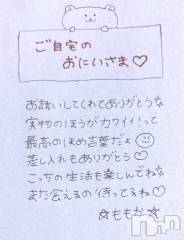 ご自宅の
おにいさま♡
お誘いしてくれてありがとうな
実物のほうがカワイイ!って
最高のほめ言葉だょ☺
差し入れもありがとう♡
こっちの生活も楽しんでねな
また会えるの待ってるね♡
☆ももか☆